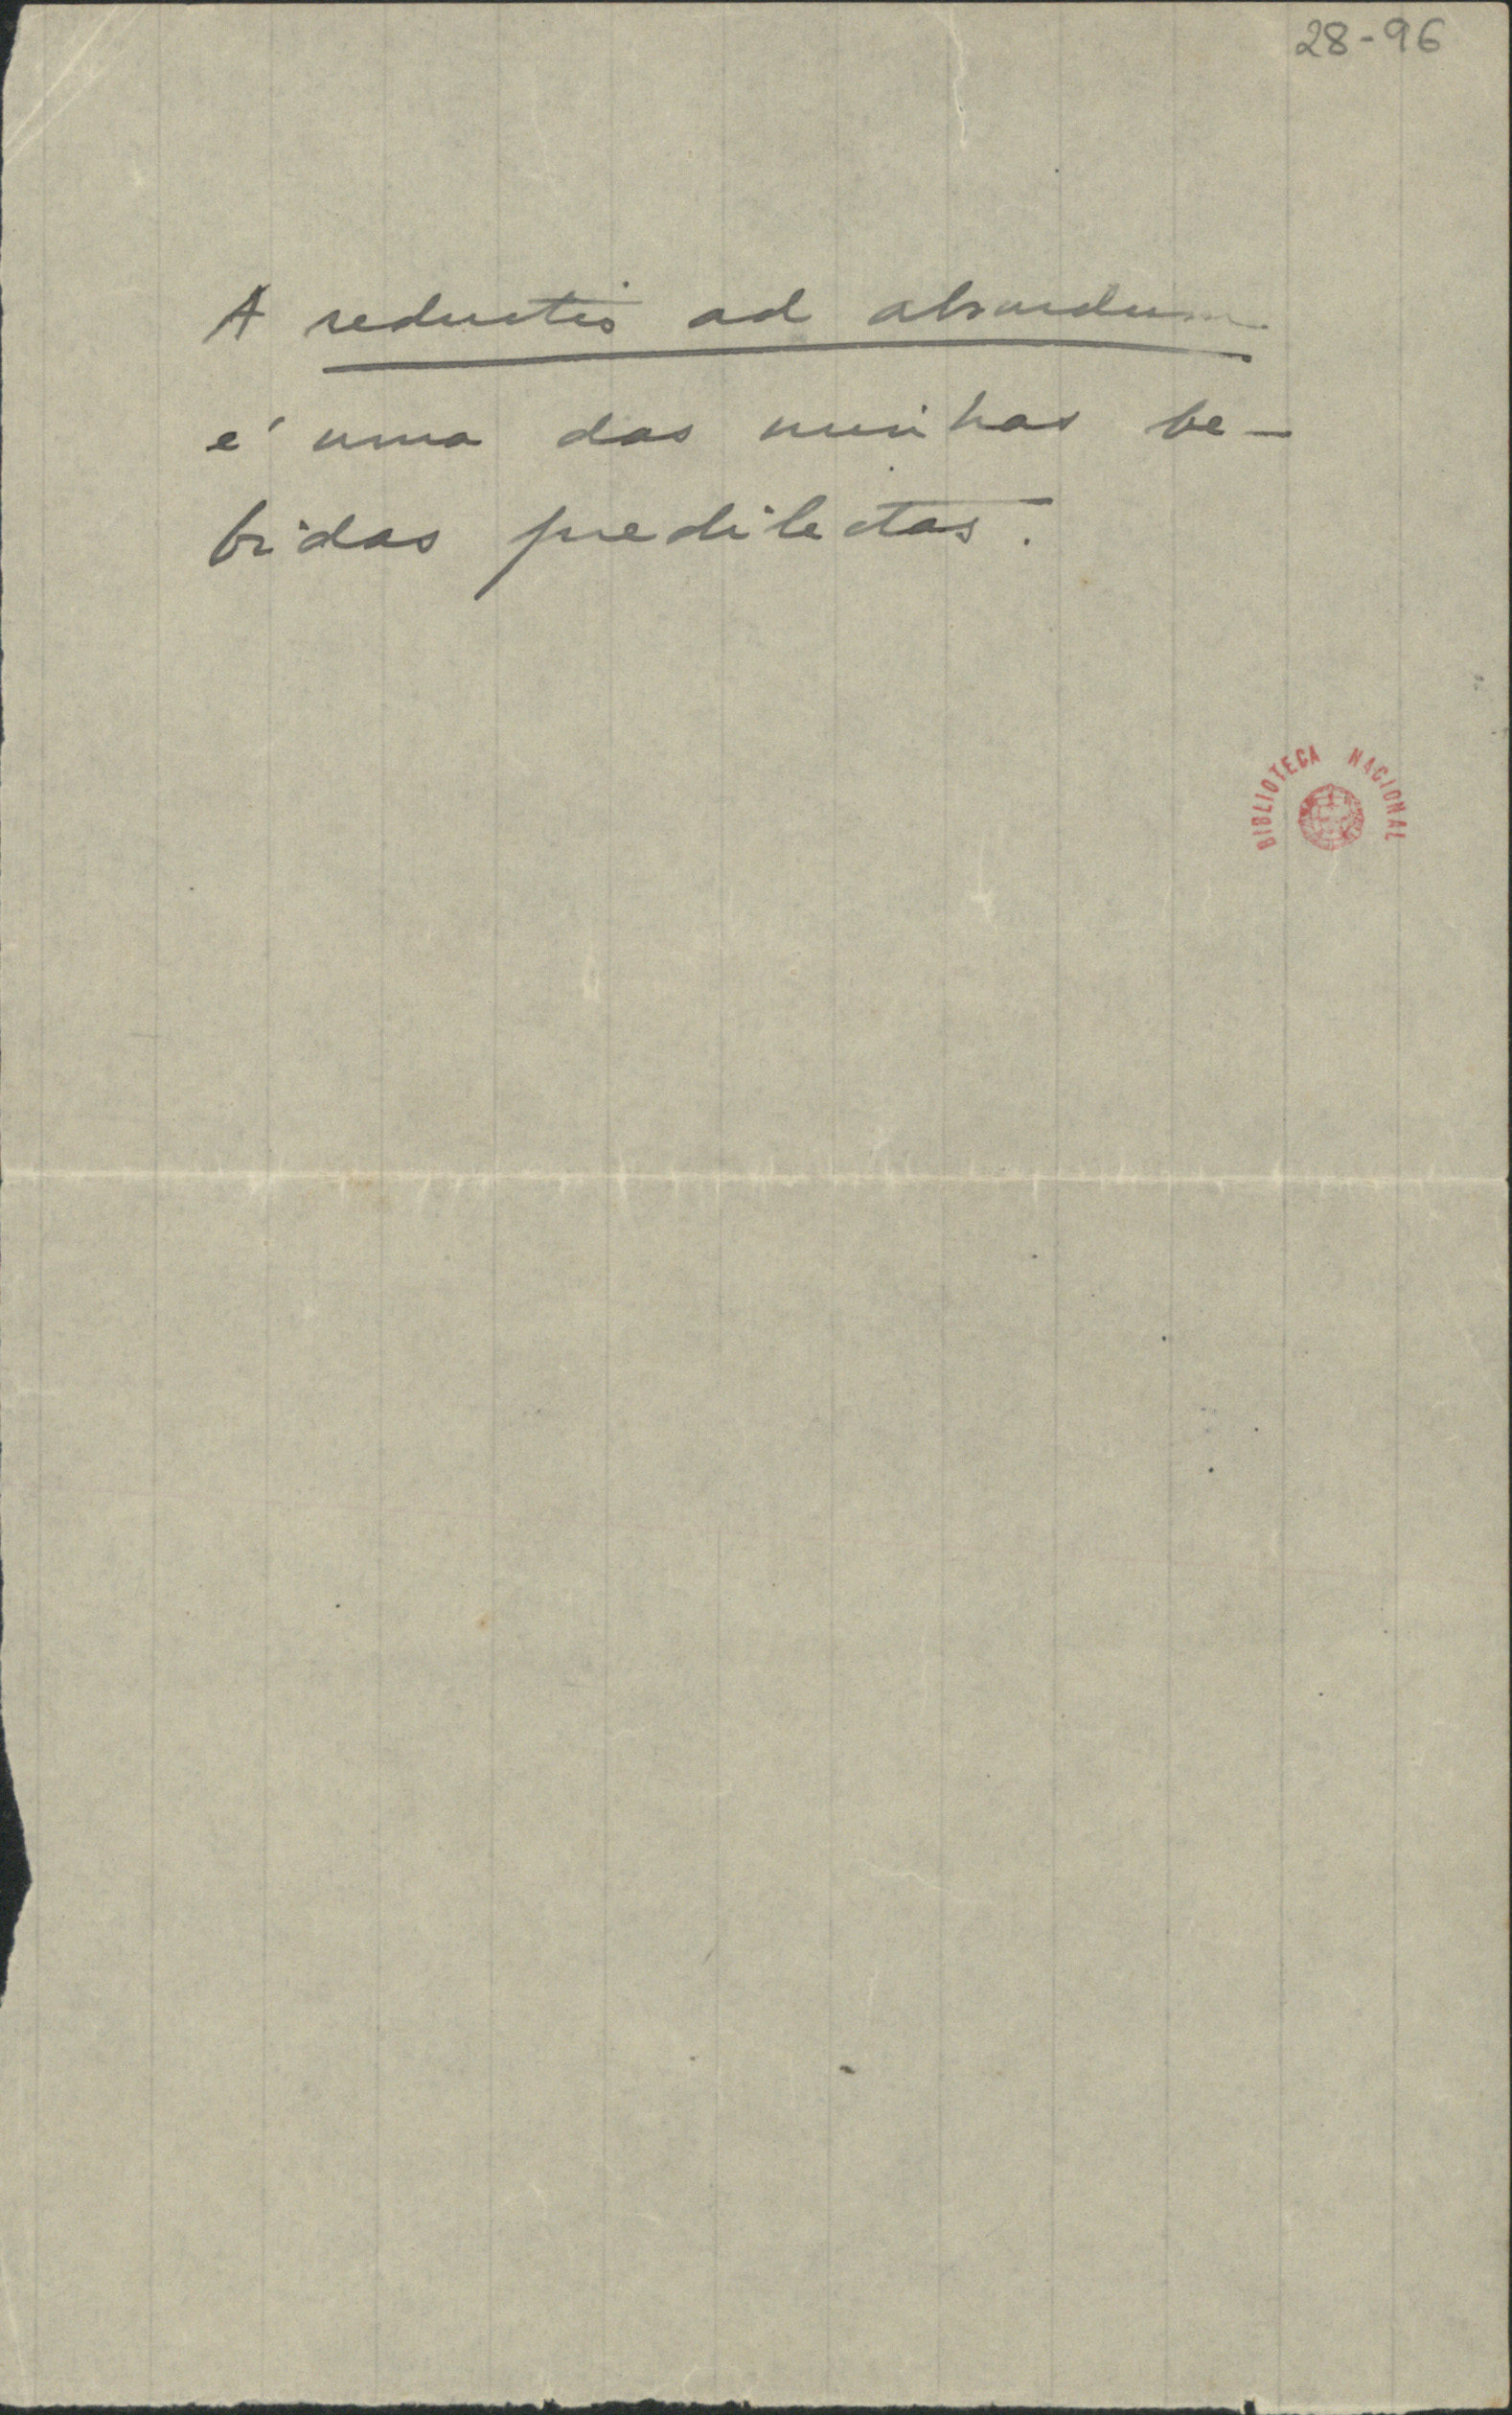 28-96
A reductio ad absurdum
é uma das minhas be-
bidas predilectas.
BIBLIOTECA NACIONAL